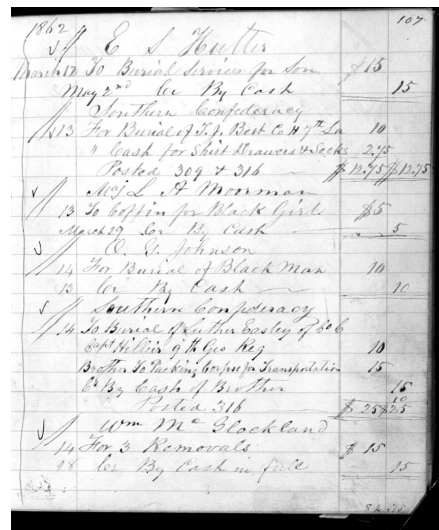 107
1862
E S Hutter
March 12 To Burial Services for Son $15
May 2nd Cr By Cash 15
Southern Confederacy
13 For Burial of T.J. Best Co H 7th La 10
" Cash for Shirt Drawers & Socks 2.75
Posted 309 & 316 $12.75 $12.75
L A Moorman
13 To Coffin for Black Girl $5
March 29 Cr By Cash 5
O. G. Johnson
14 For Burial of Black Man 10
13 Cr By Cash 10
Southern Confederacy
14 To Burial of Luther Easley of Co C
Capt Hillier 9th Geo Reg 10
Brother To Packing Corpse for Transportation 15
Cr By Cash of Brother 15
Posted 316 $25 $25
10
Wm Mc Glockland
14 For 3 Removals $15
18 Cr By Cash in full 15
82.75